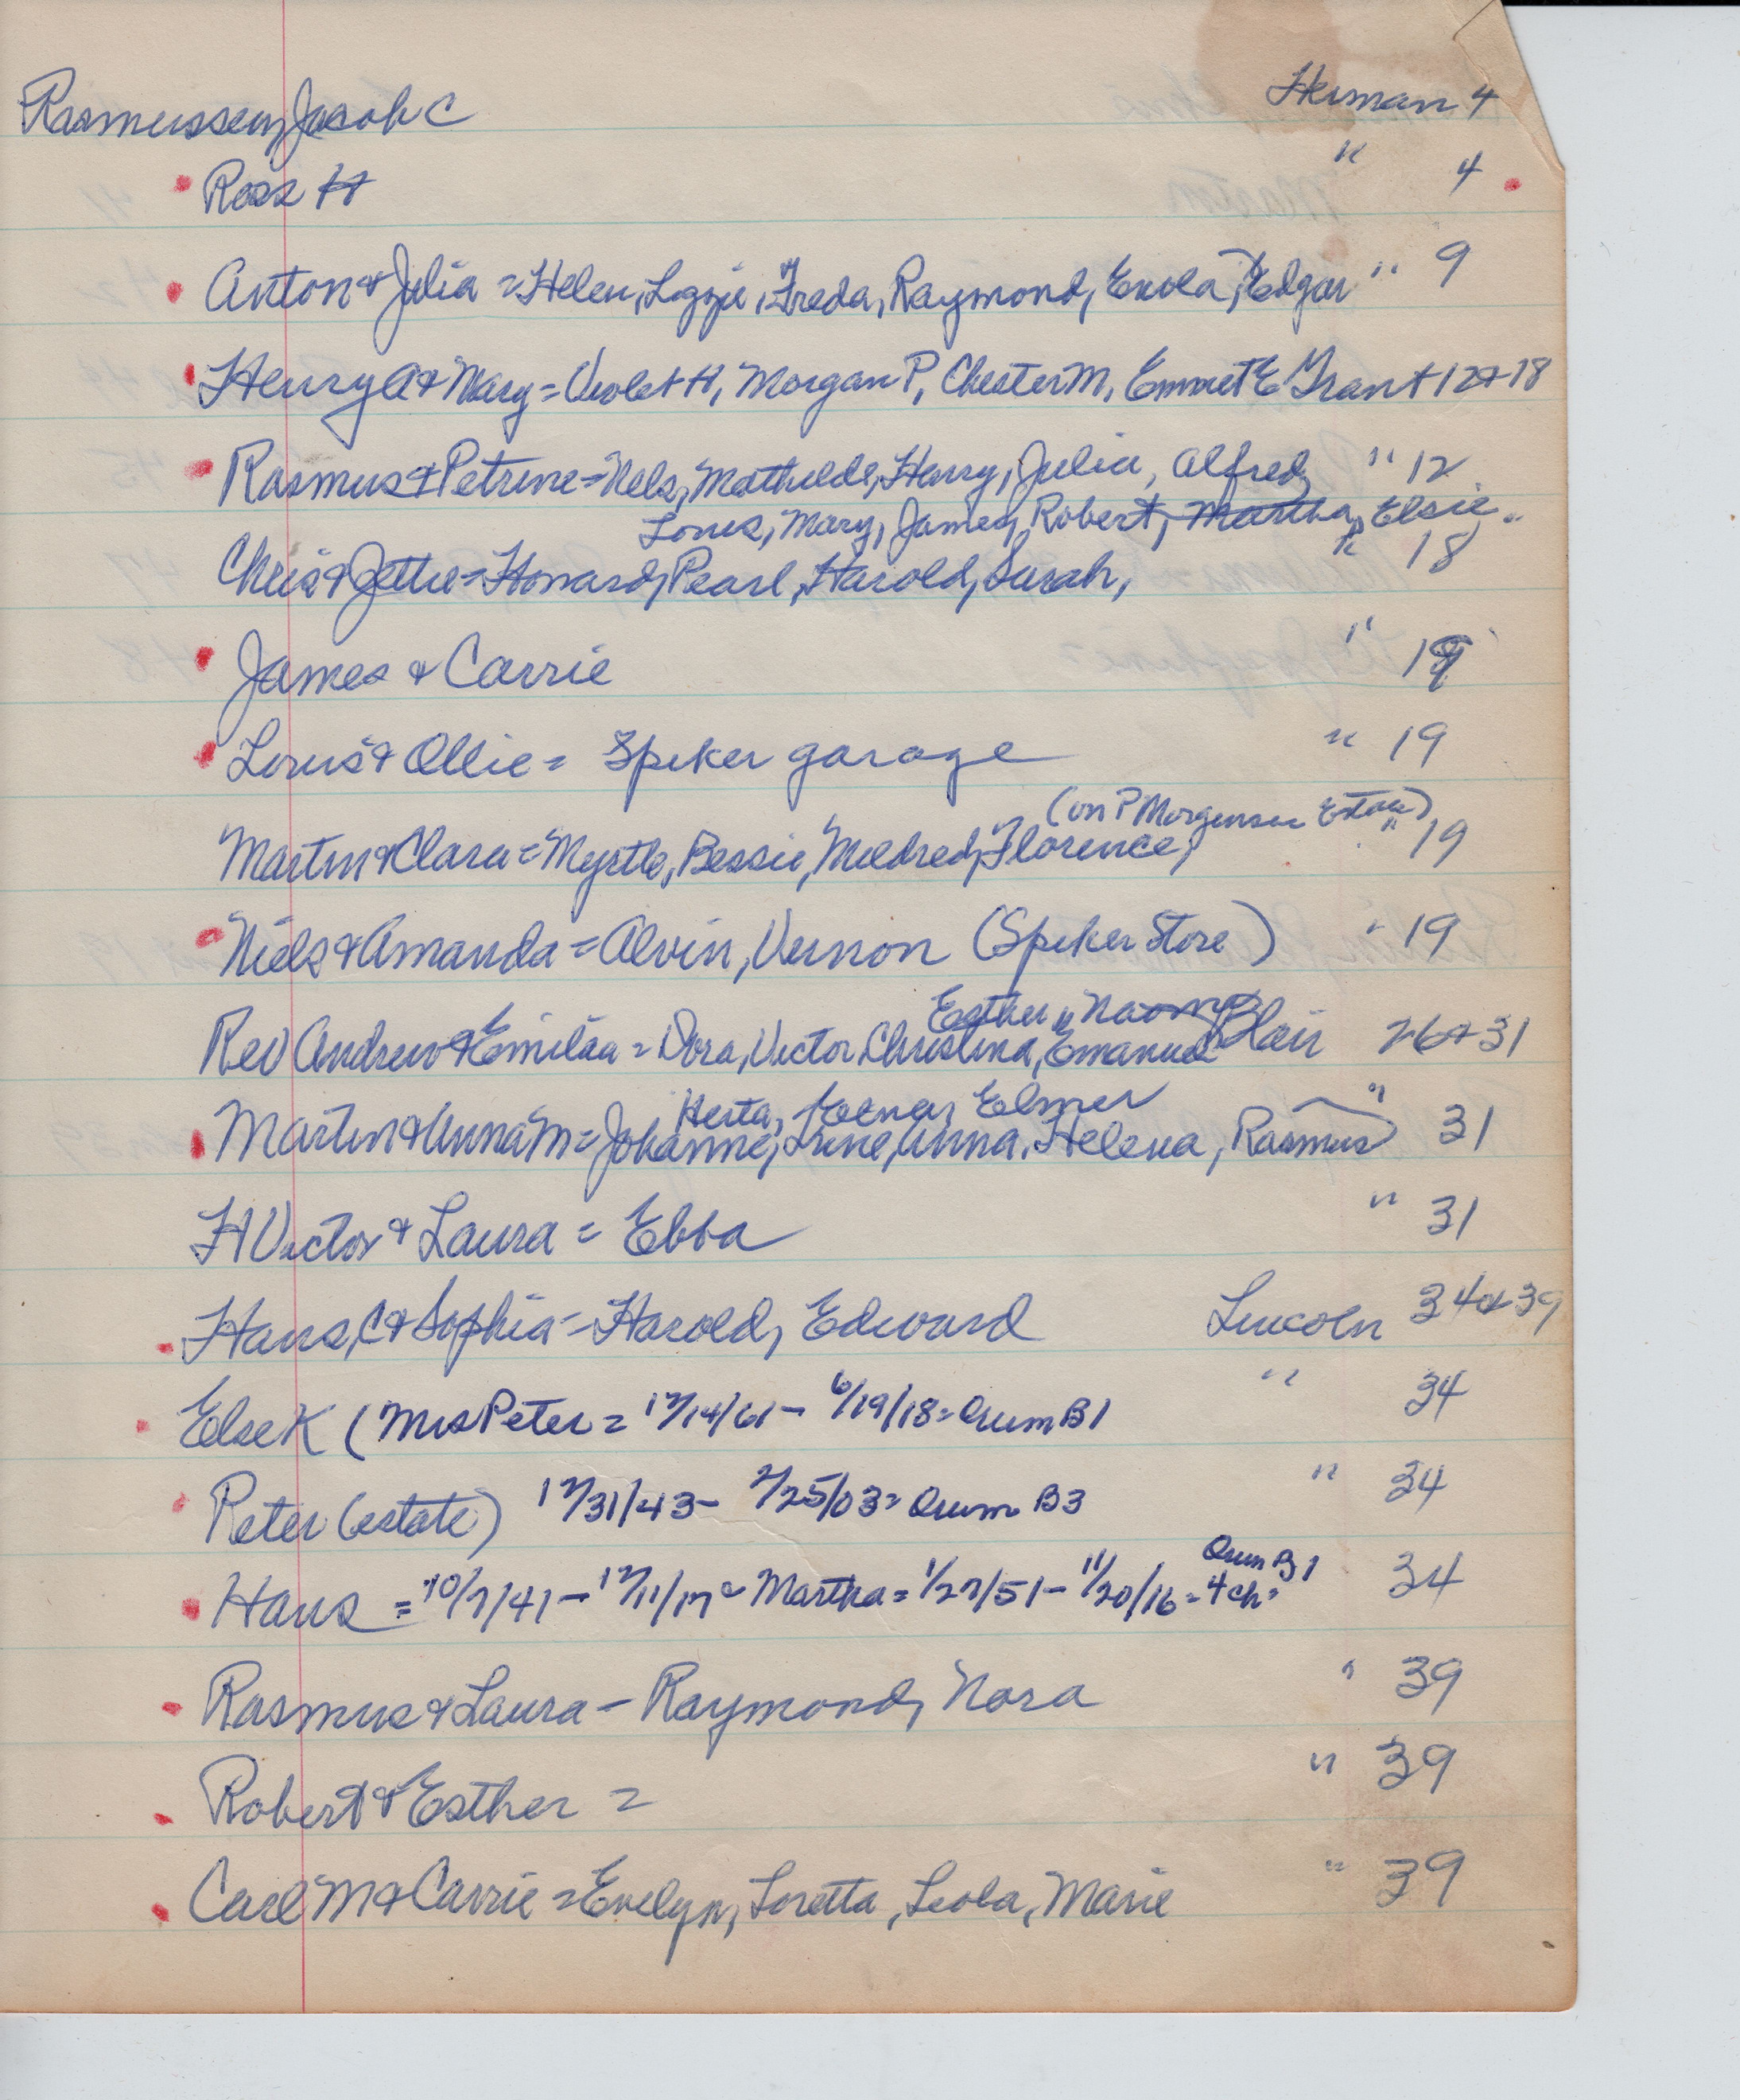 Rasmussen, Jacob C Herman 4
Ross H " 4
Anton & Julia = Helen, Lizzie, Freda, Raymond, Enola, Edgar " 9
Henry A & Mary = Violet H, Morgan P, Chester M, Emmet E Grant 12 & 18
Rasmus & Petrine = Nels, Mathilde, Harry, Julia, Alfred, " 12
Louis, Mary, James, Robert, Martha, Elsie
Chris & Jettie = Howard, Pearl, Harold, Sarah, " 18
James & Carrie " 19
Louis & Ollie = Spiker garage " 19
(on P Morgensen Estate)
Martin & Clara = Myrtle, Bessie, Mildred, Florence, " 19
Niels & Amanda = Alvin, Vernon (Spiker Store) " 19
Esther, Naomi
Rev Andrew & Emilia = Dora, Victor, Christina, Emanuel Blair 26 & 31
Herta, Elmer
Martin & Anna M = Johanne, Anna, Helena, Rasmus " 31
H Victor & Laura = Ebba " 31
Hans, C & Sophia = Harold, Edward Lincoln 34 & 39
Else K (Mrs Peter = 12/14/61 - 6/19/18 = Orum B1 " 34
Peter (estate) 12/31/43 - 2/25/03 = Orum B3 " 34
Orum B1
Hans = 10/7/41 - 12/11/17 = Martha = 1/27/51 - 11/20/16 = 4 ch = 34
Rasmus & Laura - Raymond, Nora " 39
Robert & Esther = " 39
Carl M & Carrie = Evelyn, Loretta, Leola, Marie " 39